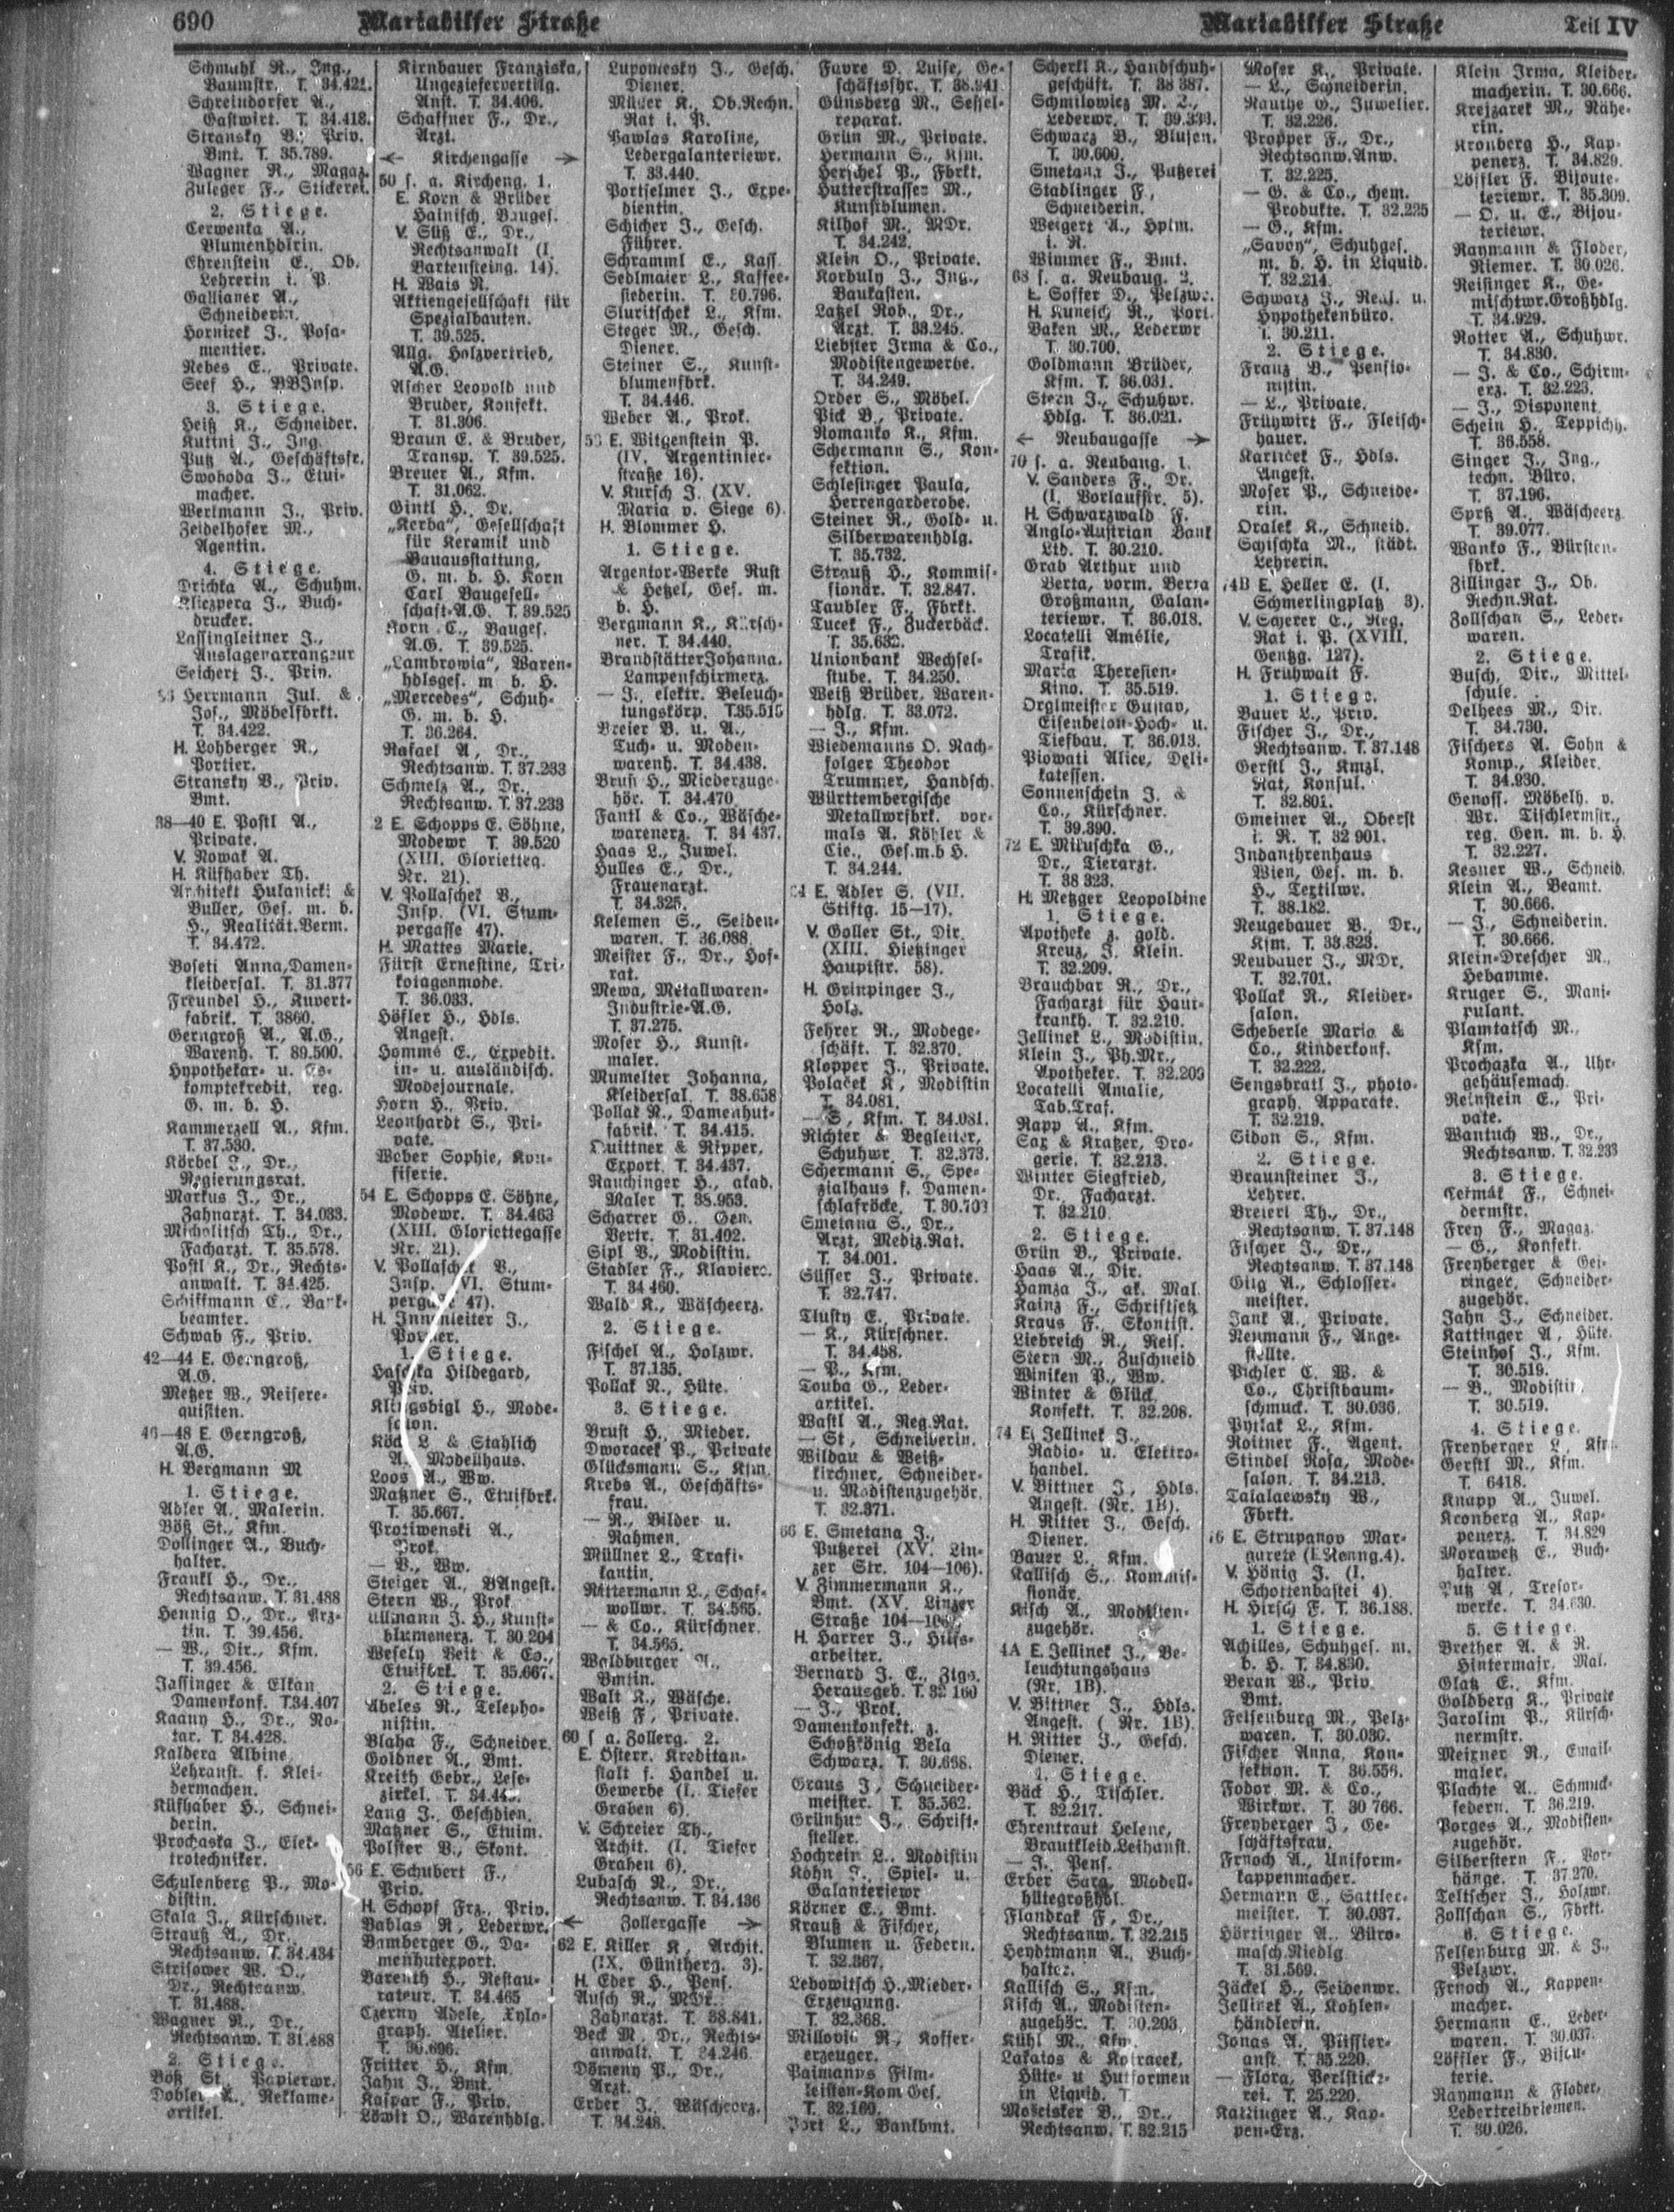 690
Mariahilfer Straße
Mariahilfer Straße
Teil IV
Schmuhl R., Ing.,
Baumstr. T. 34.421.
Schreindorfer A.,
Gastwirt. T. 34.418.
Stransky B., Priv.
Bmt. T. 35.789.
Wagner R., Magaz.
Zuleger F., Stickerei.
2. Stiege.
Cerwenka A.,
Blumenhdlrin.
Ehrenstein E., Ob.
Lehrerin i. P.
Gallianer A.,
Schneiderin.
Hornicek J., Posa-
mentier.
Rebes E., Private.
Seef H., BBInsp.
3. Stiege.
Heiß K., Schneider.
Kutini J., Ing.
Putz A., Geschäftsfr.
Swoboda J., Etui-
macher.
Wertmann J., Priv.
Zeidelhofer M.,
Agentin.
4. Stiege.
Drichta A., Schuhm.
Kliezpera J., Buch-
drucker.
Lassingleitner J.,
Auslagenarrangeur
Seichert J., Priv.
Herrmann Jul. &
Jos., Möbelfbrkt.
T. 34.422.
H. Lohberger R.,
Portier.
Stransky B., Priv.
Bmt.
38—40 E. Postl A.,
Private.
V. Nowak A.
H. Küfhaber Th.
Architekt Hukanicki &
Buller, Ges. m. b.
H., Realität.Verm.
T. 34.472.
Boseti Anna, Damen-
kleidersal. T. 31.377
Freundel H., Kuvert-
fabrik. T. 3860.
Gerngroß A., A.G.,
Warenh. T. 89.500.
Hypothekar- u. Es-
komptekredit, reg.
G. m. b. H.
Kammerzell A., Kfm.
T. 37.530.
Körbel J., Dr.,
Regierungsrat.
Markus J., Dr.,
Zahnarzt. T. 34.033.
Micholitsch Th., Dr.,
Facharzt. T. 35.578.
Postl K., Dr., Rechts-
anwalt. T. 34.425.
Schiffmann E., Bank-
beamter.
Schwab F., Priv.
42—44 E. Gerngroß,
A.G.
Metzer W., Reisere-
quisiten.
46—48 E. Gerngroß,
A.G.
H. Bergmann M
1. Stiege.
Adler A., Malerin.
Böß St., Kfm.
Dollinger A., Buch-
halter.
Frankl H., Dr.,
Rechtsanw. T. 31.488
Hennig O., Dr., Ärz-
tin. T. 39.456.
— W., Dir., Kfm.
T. 39.456.
Jassinger & Elkan
Damenkonf. T. 34.407
Kaany H., Dr., No-
tar. T. 34.428.
Kaldera Albine,
Lehranst. f. Klei-
dermachen.
Küfhaber H., Schnei-
derin.
Prochaska J., Elek-
trotechniker.
Schulenberg P., Mo-
distin.
Skala J., Kürschner.
Strauß A., Dr.,
Rechtsanw. T. 34.434
Strisower W. O.,
Dr., Rechtsanw.
T. 31.488.
Wagner R., Dr.,
Rechtsanw. T. 31.488
2. Stiege.
Böß St., Papierwr.
Reklame-
artikel.
Kirnbauer Franziska,
Ungeziefervertilg.
Anst. T. 34.406.
Schaffner F., Dr.,
Arzt.
← Kirchengasse →
50 s. a. Kircheng. 1.
E. Korn & Brüder
Hainisch, Bauges.
V. Süß E., Dr.,
Rechtsanwalt (I.
Bartensteing. 14).
H. Wais R.
Aktiengesellschaft für
Spezialbauten.
T. 39.525.
Allg. Holzvertrieb,
A.G.
Ascher Leopold und
Bruder, Konfekt.
T. 31.306.
Braun E. & Bruder,
Transp. T. 39.525.
Breuer A., Kfm.
T. 31.062.
Gintl H., Dr.
„Kerba“, Gesellschaft
für Keramik und
Bauausstattung,
G. m. b. H. Korn
Carl Baugesell-
schaft-A.G. T. 39.525
Korn C., Bauges.
A.G. T. 39.525.
„Lambrowia“, Waren-
hdlsges. m. b. H.
„Mercedes“, Schuh-
G. m. b. H.
T. 36.264.
Rafael A., Dr.,
Rechtsanw. T. 37.233
Schmelz A., Dr.,
Rechtsanw. T. 37.233
2 E. Schopps E. Söhne,
Modewr. T. 39.520
(XIII. Glorietteg.
Nr. 21).
V. Pollaschek B.,
Insp. (VI. Stum-
pergasse 47).
H. Mattes Marie.
Fürst Ernestine, Tri-
kotagenmode.
T. 36.033.
Höfler H., Hdls.
Angest.
Hommé E., Expedit.
in- u. ausländisch.
Modejournale.
Horn H., Priv.
Leonhardt S., Pri-
vate.
Weber Sophie, Kon-
fiserie.
54 E. Schopps E. Söhne,
Modewr. T. 34.463
(XIII. Gloriettegasse
Nr. 21).
V. Pollaschek B.,
Insp. VI. Stum-
pergasse 47).
H. Innenleiter J.,
Portier.
1. Stiege.
Haschka Hildegard,
Priv.
Klingsbigl H., Mode-
salon.
Köck L. & Stahlich
A., Modellhaus.
Loos A., Ww.
Matzner S., Etuisfbrk.
T. 35.667.
Protiwenski A.,
Prok.
— B., Ww.
Steiger A., BAngest.
Stern W., Prok
Ullmann J. H., Kunst-
blumenerz. T. 30.204
Wesely Veit & Co.,
Etuisfbrk. T. 35.667.
2. Stiege.
Abeles R., Telepho-
nistin.
Blaha F., Schneider.
Goldner A., Bmt.
Kreith Gebr., Lese-
zirkel.
Lang J., Geschdien.
Matzner S., Etuim.
Polster B., Skont.
56 E. Schubert F.,
Priv.
H. Schopf Frz., Priv.
Bablas R., Lederwr.
Bamberger G., Da-
menhutexport.
Barenth H., Restau-
rateur. T. 34.465
Czerny Adele, Xylo-
graph. Atelier.
T. 36.696.
Fritter H., Kfm.
Jahn J., Bmt.
Kaspar F., Priv.
Löwit O., Warenhdlg.
Lupomesky J., Gesch.
Diener.
Müller K., Ob.Rechn.
Rat i. P.
Pawlas Karoline,
Ledergalanteriewr.
T. 33.440.
Portselmer J., Expe-
dientin.
Schicher J., Gesch.
Führer.
Schramml E., Kass.
Sedlmaier L., Kaffee-
siederin. T. 30.796.
Sluritschek L., Kfm.
Steger M., Gesch.
Diener.
Steiner S., Kunst-
blumenfbrk.
T. 34.446.
Weber A., Prok.
E. Witgenstein P.
(IV. Argentinier-
straße 16).
V. Kursch J. (XV.
Maria v. Siege 6).
H. Blommer H.
1. Stiege.
Argentor-Werke Rust
& Hetzel, Ges. m.
b. H.
Bergmann K., Kürsch-
ner. T. 34.440.
Brandstätter Johanna,
Lampenschirmerz.
— J., elektr. Beleuch-
tungskörp. T.35.515
Breier B. u. A.,
Tuch- u. Moden-
warenh. T. 34.438.
Brust H., Miederzuge-
hör. T. 34.470
Fantl & Co., Wäsche-
warenerz. T. 34 437.
Haas L., Juwel.
Hulles E., Dr.,
Frauenarzt.
T. 34.325.
Kelemen S., Seiden-
waren. T. 36.088.
Meister F., Dr., Hof-
rat.
Mewa, Metallwaren-
Industrie-A.G.
T. 37.275.
Moser H., Kunst-
maler.
Mumelter Johanna,
Kleidersal. T. 38.658
Pollak R., Damenhut-
fabrik. T. 34.415.
Quittner & Ripper,
Export. T. 34.437.
Rauchinger H., akad.
Maler T. 38.953.
Scharrer G., Gen.
Vertr. T. 31.402.
Sipl B., Modistin.
Stadler F., Klaviere.
T. 34 460.
Wald K., Wäscheerz.
2. Stiege.
Fischel A., Holzwr.
T. 37.135.
Pollak R., Hüte.
3. Stiege.
Brust H., Mieder.
Dworacek P., Private
Glücksmann S., Kfm.
Krebs A., Geschäfts-
frau.
— R., Bilder u.
Rahmen.
Müllner L., Trafi-
kantin.
Rittermann L., Schaf-
wollwr. T. 34.565.
— & Co., Kürschner.
T. 34.565.
Waldburger A.,
Bmtin.
Walt K., Wäsche.
Weiß F., Private.
60 s. a. Zollerg. 2.
E. Österr. Kreditan-
stalt f. Handel u.
Gewerbe (I. Tiefer
Graben 6).
V. Schreier Th.,
Archit. (I. Tiefer
Graben 6).
Lubasch R., Dr.,
Rechtsanw. T. 34.436
← Zollergasse →
62 E. Killer K., Archit.
(IX. Güntherg. 3).
H. Eder H., Pens.
Ausch R., MDr.
Zahnarzt. T. 38.841.
Beck M., Dr., Rechts-
anwalt. T. 34.246.
Dömeny P., Dr.,
Arzt.
Erber J., Wäscheerz.
T. 34.248.
Favre D. Luise, Ge-
schäftsfhr. T. 38.941
Günsberg M., Sessel-
reparat.
Grün M., Private.
Hermann S., Kfm.
Herschel P., Fbrkt.
Hutterstrasser M.,
Kunstblumen.
Kilhof M., MDr.
T. 34.242.
Klein O., Private.
Korbuly J., Ing.,
Baukasten.
Latzel Rob., Dr.,
Arzt. T. 33.245.
Liebster Irma & Co.,
Modistengewerbe.
T. 34.249.
Order S., Möbel.
Pick B., Private.
Romanko K., Kfm.
Schermann S., Kon-
fektion.
Schlesinger Paula,
Herrengarderobe.
Steiner R., Gold- u.
Silberwarenhdlg.
T. 35.732.
Strauß H., Kommis-
sionär. T. 32.847.
Taubler F., Fbrkt.
Tucek F., Zuckerbäck.
T. 35.632.
Unionbank Wechsel-
stube. T. 34.250.
Weiß Brüder, Waren-
hdlg. T. 33.072.
— J., Kfm.
Wiedemanns O. Nach-
folger Theodor
Trummer, Handsch.
Württembergische
Metallwrfbrk. vor-
mals A. Köhler &
Cie., Ges.m.b H.
T. 34.244.
E. Adler S. (VII.
Stiftg. 15—17).
V. Goller St., Dir.
(XIII. Hietzinger
Hauptstr. 58).
H. Grinpinger J.,
Holz.
Fehrer R., Modege-
schäft. T. 32.370.
Klopper J., Private.
Polacek K., Modistin
T. 34.081.
— S., Kfm. T. 34.081.
Richter & Begleiter,
Schuhwr. T. 32.373.
Schermann S., Spe-
zialhaus f. Damen-
schlafröcke. T. 30.703
Smetana S., Dr.,
Arzt, Mediz.Rat.
T. 34.001.
Süsser J., Private.
T. 32.747.
Tlusty E., Private.
— K., Kürschner.
T. 34.458.
— P., Kfm.
Touba G., Leder-
artikel.
Wastl A., Reg.Rat.
— St., Schneiderin.
Wildau & Weiß-
kirchner, Schneider-
u. Modistenzugehör.
T. 32.371.
66 E. Smetana J.,
Putzerei (XV. Lin-
zer Str. 104—106).
V. Zimmermann K.,
Bmt. (XV. Linzer
Straße 104—106).
H. Harrer J., Hilfs-
arbeiter.
Bernard J. E., Ztgs.
Herausgeb. T. 32 160
— J., Prok.
Damenkonfekt. z.
Schoßkönig Bela
Schwarz. T. 30.698.
Graus J., Schneider-
meister. T. 35.562.
Grünhut J., Schrift-
steller.
Hochrein L., Modistin
Kohn J., Spiel- u.
Galanteriewr
Körner E., Bmt.
Krauß & Fischer,
Blumen u. Federn.
T. 32.367.
Lebowitsch H., Mieder-
Erzeugung.
T. 32.368.
Millovic R., Koffer-
erzeuger.
Paimanns Film-
leisten-Kom Ges.
T. 32.160.
Port L., Bankbmt.
Scherkl K., Handschuh-
geschäft. T. 38 387.
Schmilowicz M. L.,
Lederwr. T. 39.333.
Schwarz B., Blusen.
T. 30.600.
Smetana J., Putzerei
Stadlinger F.,
Schneiderin.
Weigert A., Hptm.
i. R.
Wimmer F., Bmt.
68 s. a. Neubaug. 2.
E. Soffer D., Pelzwr.
H. Kunesch R., Port.
Baken M., Lederwr
T. 30.700.
Goldmann Brüder,
Kfm. T. 36.031.
Stern J., Schuhwr.
Hdlg. T. 36.021.
← Neubaugasse →
70 s. a. Neubaug. 1.
V. Sanders F., Dr.
(I. Vorlaufstr. 5).
H. Schwarzwald F.
Anglo-Austrian Bank
Ltd. T. 30.210.
Grab Arthur und
Berta, vorm. Berta
Großmann, Galan-
teriewr. T. 36.018.
Locatelli Amélie,
Trafik.
Maria Theresien-
Kino. T. 35.519.
Orglmeister Gustav,
Eisenbeton-Hoch- u.
Tiefbau. T. 36.013.
Piowati Alice, Deli-
katessen.
Sonnenschein J. &
Co., Kürschner.
T. 39.390.
72 E. Mikuschka G.,
Dr., Tierarzt.
T. 38 323.
H. Metzger Leopoldine
1. Stiege.
Apotheke z. gold.
Kreuz, J. Klein.
T. 32.209.
Brauchbar R., Dr.,
Facharzt für Haut-
krankh. T. 32.210.
Jellinek L., Modistin.
Klein J., Ph.Mr.,
Apotheker. T. 32.209
Locatelli Amalie,
Tab.Traf.
Rapp A., Kfm.
Sax & Kratzer, Dro-
gerie. T. 32.213.
Winter Siegfried,
Dr. Facharzt.
T. 32.210.
2. Stiege.
Grün B., Private.
Haas A., Dir.
Hamza J., ak. Mal.
Kainz F., Schriftsetz.
Kraus F., Skontist.
Liebreich R., Reis.
Stern M., Zuschneid
Winiken P., Ww.
Winter & Glück,
Konfekt. T. 32.208.
74 E. Jellinek J.,
Radio- u. Elektro-
handel.
V. Bittner J., Hdls.
Angest. (Nr. 1B).
H. Ritter J., Gesch.
Diener.
Bauer L., Kfm.
Kallisch S., Kommis-
sionär.
Kisch A., Modisten-
zugehör.
4A E. Jellinek J., Be-
leuchtungshaus
(Nr. 1B).
V. Bittner J., Hdls.
Angest. ( Nr. 1B).
H. Ritter J., Gesch.
Diener.
1. Stiege.
Bäck H., Tischler.
T. 32.217.
Ehrentraut Helene,
Brautkleid.Leihanst.
— J., Pens.
Erber Sara, Modell-
hütegroßhdl.
Flandrak F., Dr.,
Rechtsanw. T. 32.215
Heydtmann A., Buch-
halter.
Kallisch S., Kfm.
Kisch A., Modisten-
zugehör. T. 30.203.
Kühl M., Kfm.
Lakatos & Kotracek,
Hüte- u Hutformen
in Liquid. T
Moscisker B., Dr.,
Rechtsanw. T. 32.215
Moser K., Private.
— L., Schneiderin.
Nauthe G., Juwelier.
T. 32.226.
Propper F., Dr.,
Rechtsanw.Anw.
T. 32.225.
— G. & Co., chem.
Produkte. T. 32.225
— G., Kfm.
„Savoy“, Schuhges.
m. b. H. in Liquid.
T. 32.214.
Schwarz J., Real. u.
Hypothekenbüro.
T. 30.211.
2. Stiege.
Franz B., Pensio-
nistin.
— L., Private.
Frühwirt F., Fleisch-
hauer.
Karnicek F., Hdls.
Angest.
Moser P., Schneide-
rin.
Oralek K., Schneid.
Schischka M., städt.
Lehrerin.
74B E. Heller E. (I.
Schmerlingplatz 3).
V. Scherer E., Reg.
Rat i. P. (XVIII.
Gentzg. 127).
H. Frühwalt F.
1. Stiege.
Bauer L., Priv.
Fischer J., Dr.,
Rechtsanw. T. 37.148
Gerstl J., Kmzl.
Rat, Konsul.
T. 32.801.
Gmeiner A., Oberst
i. R. T. 32 901.
Indanthrenhaus
Wien, Ges. m. b.
H., Textilwr.
T. 38.182.
Neugebauer B., Dr.,
Kfm. T. 33.323.
Neubauer J., MDr.
T. 32.701.
Pollak R., Kleider-
salon.
Scheberle Maria &
Co., Kinderkonf.
T. 32.222.
Sengsbratl J., photo-
graph. Apparate.
T. 32.219.
Sidon S., Kfm.
2. Stiege.
Braunsteiner J.,
Lehrer.
Breierl Th., Dr.,
Rechtsanw. T. 37.148
Fischer J., Dr.,
Rechtsanw. T. 37.148
Gilg A., Schlosser-
meister.
Jank A., Private.
Neumann F., Ange-
stellte.
Pichler C. W. &
Co., Christbaum-
schmuck. T. 30.036.
Pytlak L., Kfm.
Roitner F., Agent.
Stindel Rosa, Mode-
salon. T. 34.213.
Talalaewsky W.,
Fbrkt.
76 E. Strupanov Mar-
garete (I.Renng.4).
V. König J. (I.
Schottenbastei 4).
H. Hirsch F. T. 36.188.
1. Stiege.
Achilles, Schuhges. m.
b. H. T. 34.830.
Beran W., Priv.
Bmt.
Felsenburg M., Pelz-
waren. T. 30.030.
Fischer Anna, Kon-
fektion. T. 36.556.
Fodor M. & Co.,
Wirkwr. T. 30 766.
Freyberger J., Ge-
schäftsfrau.
Frnoch A., Uniform-
kappenmacher.
Hermann E., Sattler-
meister. T. 30.037.
Hörtinger A., Büro-
masch.Niedlg.
T. 31.569.
Jäckel H., Seidenwr.
Jellinek A., Kohlen-
händlerin.
Jonas A., Plissier-
anst. T. 35.220.
— Flora, Perlsticke-
rei. T. 25.220.
Kattinger A., Kap-
pen-Erz.
Klein Irma, Kleider-
macherin. T. 30.666.
Krejzarek M., Nähe-
rin.
Kronberg H., Kap-
penerz. T. 34.829.
Löffler F. Bijoute-
teriewr. T. 35.309.
— O. u. E., Bijou-
teriewr.
Raymann & Floder,
Riemer. T. 30.026.
Reisinger K., Ge-
mischtwr.Großhdlg.
T. 34.929.
Rotter A., Schuhwr.
T. 34.830.
— J. & Co., Schirm-
erz. T. 32.223.
— J., Disponent.
Schein H., Teppichh.
T. 36.558.
Singer J., Ing.,
techn. Büro.
T. 37.196.
Sprß A., Wäscheerz.
T. 39.077.
Wanko F., Bürsten-
fbrk.
Zillinger J., Ob.
Rechn.Rat.
Zollschan S., Leder-
waren.
2. Stiege.
Busch, Dir., Mittel-
schule.
Delhees M., Dir.
T. 34.730.
Fischers A. Sohn &
Komp., Kleider.
T. 34.930.
Genoss. Möbelh. v.
Wr. Tischlermstr.,
reg. Gen. m. b. H.
T. 32.227.
Kesner W., Schneid.
Klein A., Beamt.
T. 30.666.
— J., Schneiderin.
T. 30.666.
Klein-Drescher M.,
Hebamme.
Kruger S., Mani-
pulant.
Plamtatsch M.,
Kfm.
Prochazka A., Uhr-
gehäusemach.
Reinstein E., Pri-
vate.
Wantuch W., Dr.,
Rechtsanw. T. 32.233
3. Stiege.
Cermák F., Schnei-
dermstr.
Frey F., Magaz.
— G., Konfekt.
Freyberger & Gei-
ringer, Schneider-
zugehör.
Jahn J., Schneider.
Kattinger A., Hüte.
Steinhof J., Kfm.
T. 30.519.
— B., Modistin.
T. 30.519.
4. Stiege.
Freyberger L., Kfm.
Gerstl M., Kfm.
T. 6418.
Knapp A., Juwel.
Kronberg A., Kap-
penerz. T. 34.829
Morawetz E., Buch-
halter.
Putz A., Tresor-
werke. T. 34.630.
5. Stiege.
Brether A. & R.
Hintermajr, Mal.
Glatz E., Kfm.
Goldberg K., Private
Jarolim P., Kürsch-
nermstr.
Meixner R., Email-
maler.
Plachte A., Schmuck-
federn. T. 36.219.
Porges A., Modisten-
zugehör.
Silberstern F., Vor-
hänge. T. 37.270.
Teltscher J., Holzwr.
Zollschan S., Fbrkt.
6. Stiege.
Felsenburg M. & J.,
Pelzwr.
Frnoch A., Kappen-
macher.
Hermann E., Leder-
waren. T. 30.037.
Löffler F., Bijou-
terie.
Raymann & Floder,
Ledertreibriemen.
T. 30.026.